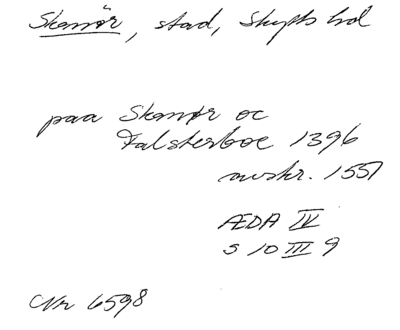 Skanör, stad, Skytts hd
paa Skanør oc
Falsterboe 1396
avskr. 1551
ÆDA IV
s 10 III 9
Nr 6598